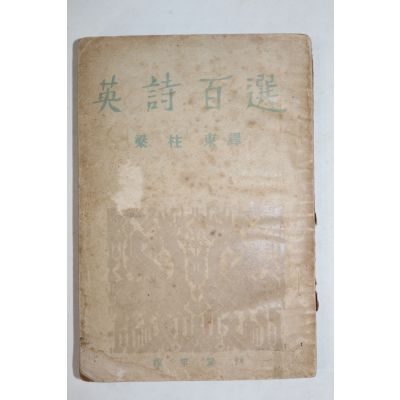 英詩百選
梁柱東譯